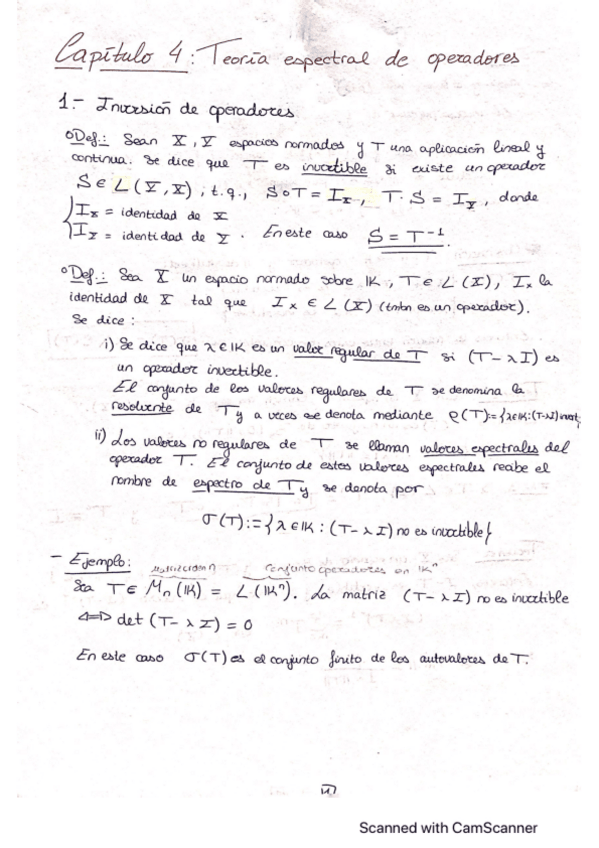 Capítulo 4: Teoría espectral de operadores
1.- Inversión de operadores
Def.: Sean X, Y espacios normados y T una aplicación lineal y
continua. Se dice que T es invertible si existe un operador
S ∈ L(Y,X), t.q., S∘T = I_X, T·S = I_Y, donde
I_X = identidad de X
I_Y = identidad de Y. En este caso S = T⁻¹.
Def.: Sea X un espacio normado sobre IK, T ∈ L(X), I_X la
identidad de X tal que I_X ∈ L(X) (tmbn es un operador).
Se dice:
i) Se dice que λ ∈ IK es un valor regular de T si (T-λI) es
un operador invertible.
El conjunto de los valores regulares de T se denomina la
resolvente de T y a veces se denota mediante ρ(T):={λ∈IK:(T-λI) invert.
ii) Los valores no regulares de T se llaman valores espectrales del
operador T. El conjunto de estos valores espectrales recibe el
nombre de espectro de T y se denota por
σ(T):={λ ∈ IK : (T-λI) no es invertible}
- Ejemplo: conjunto operadores en IKⁿ
Sea T ∈ Mₙ(IK) = L(IKⁿ). La matriz (T-λI) no es invertible
⟺ det (T-λI) = 0
En este caso σ(T) es el conjunto finito de los autovalores de T.
Scanned with CamScanner